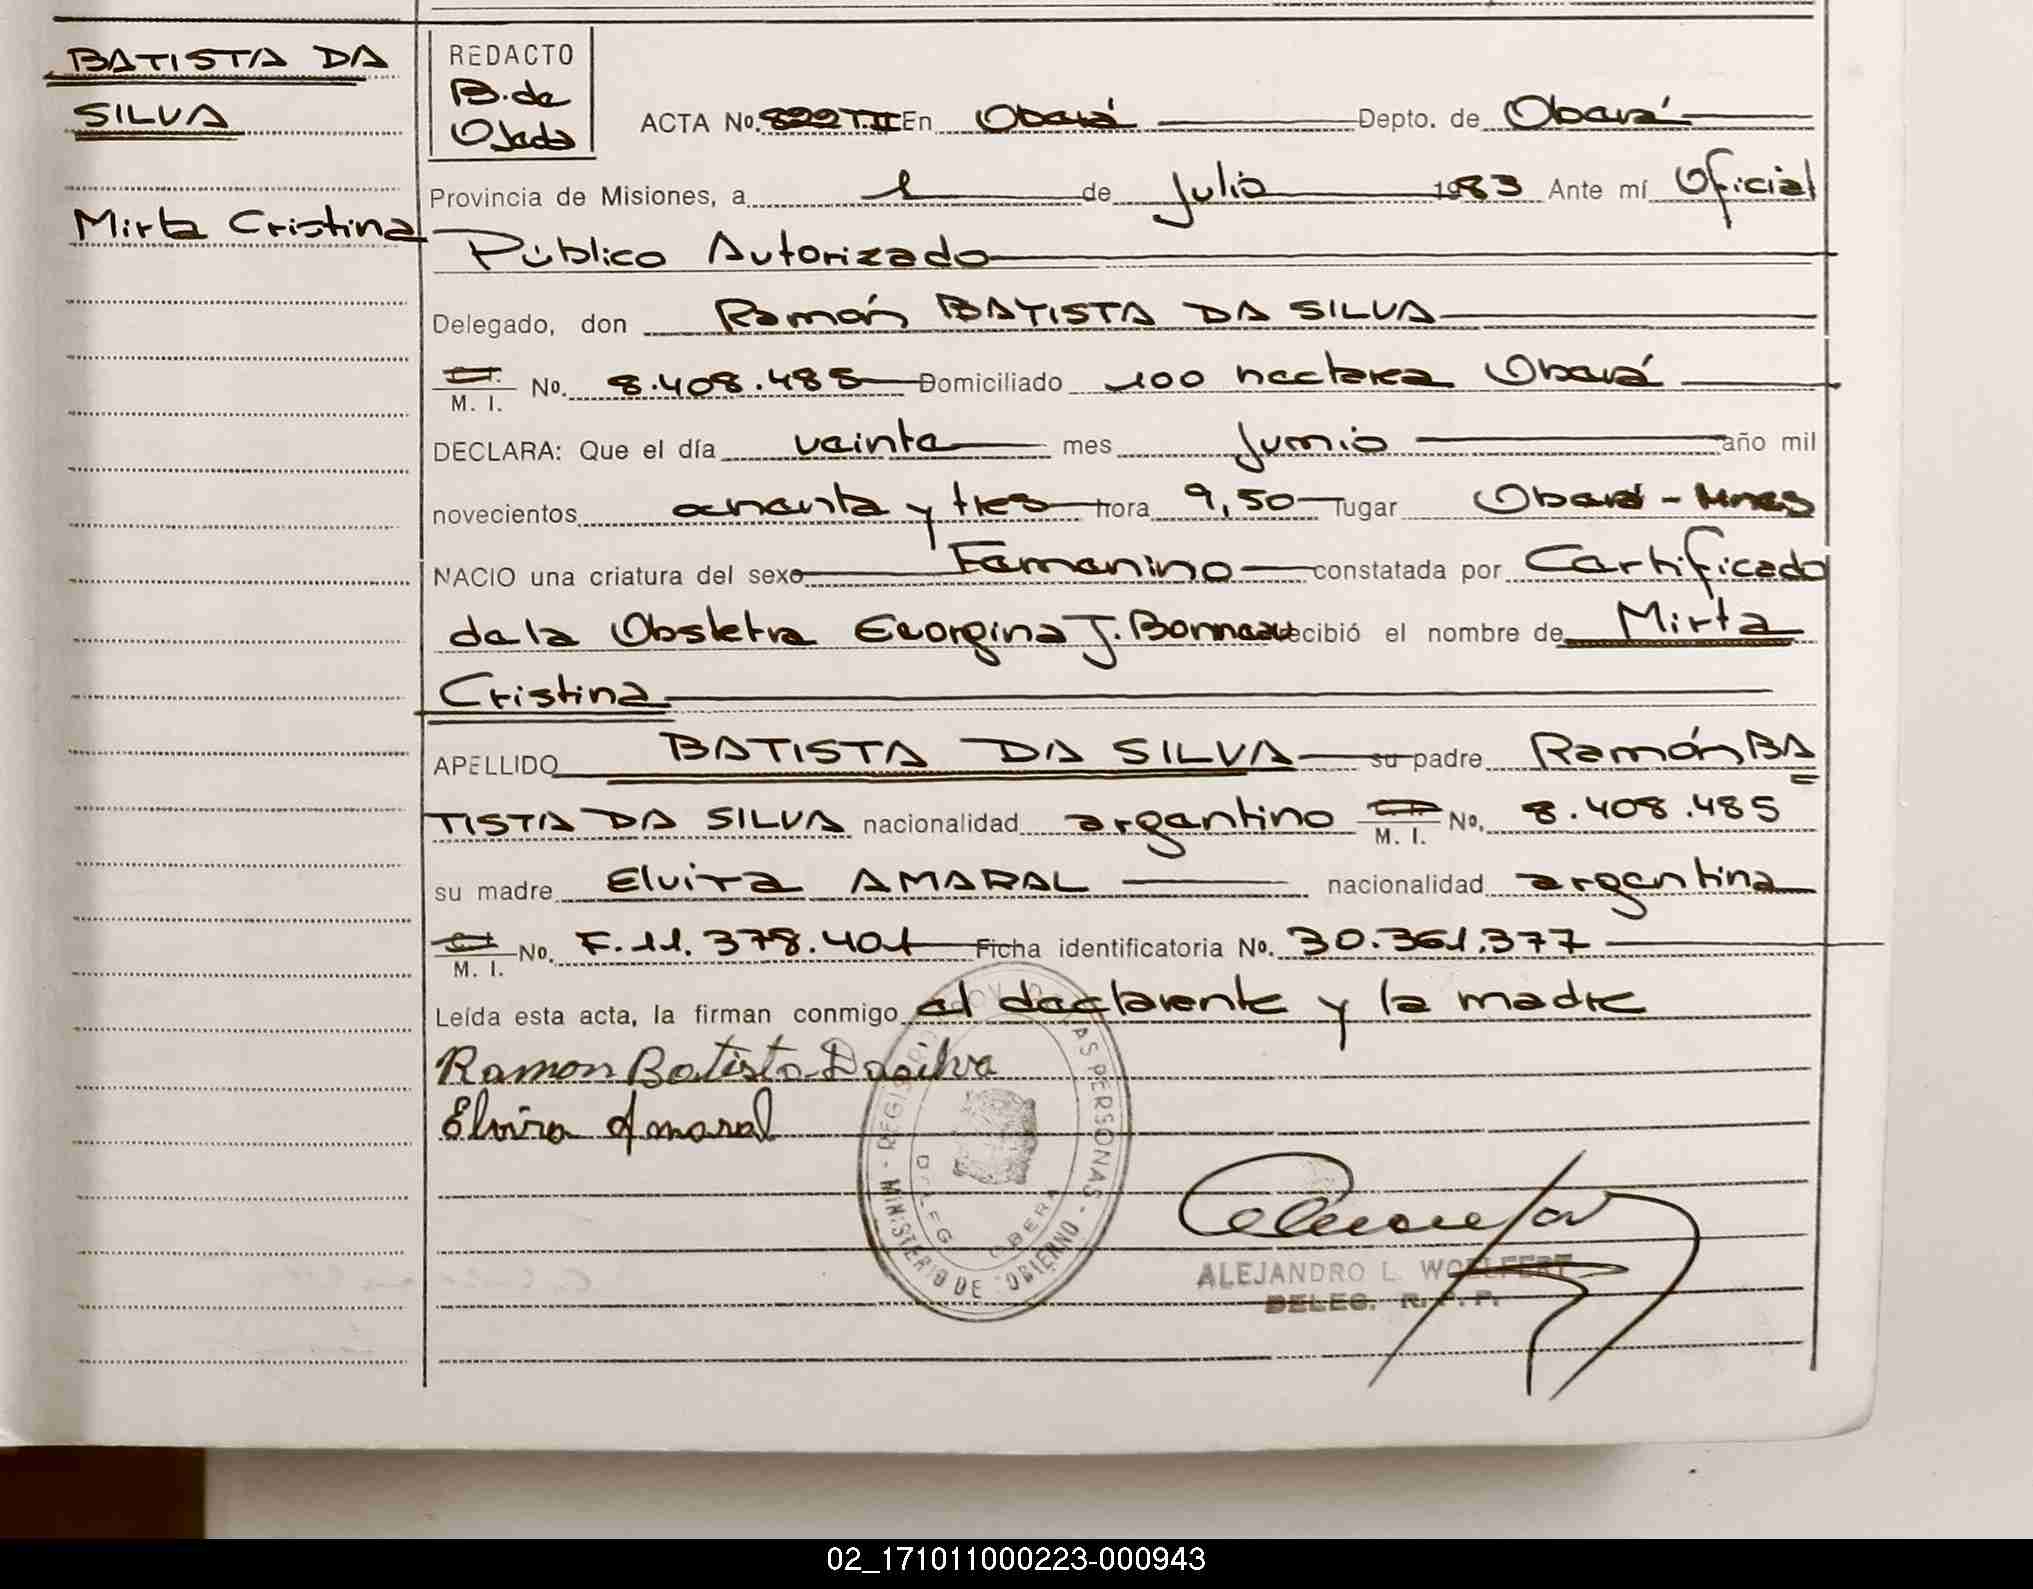 BATISTA DA
SILVA
Mirta Cristina
REDACTO
B. de
Ojeda
ACTA No. 822 T.II En Oberá Depto. de Oberá
Provincia de Misiones, a 1 de Julio 1983 Ante mí Oficial
Público Autorizado
Delegado, don Ramón BATISTA DA SILVA
M. I. No. 8.408.485 Domiciliado 100 hectarea Oberá
DECLARA: Que el día veinte mes Junio año mil
novecientos ochenta y tres hora 9,50 lugar Oberá - Mnes
NACIO una criatura del sexo Femenino constatada por Certificado
de la Obstetra Georgina J. recibió el nombre de Mirta
Cristina
APELLIDO BATISTA DA SILVA su padre Ramón BA
TISTA DA SILVA nacionalidad argentino M. I. No. 8.408.485
su madre Elvira AMARAL nacionalidad argentina
M. I. No. F. 11.378.401 Ficha identificatoria No. 30.361.377
Leída esta acta, la firman conmigo el declarente y la madre
Ramon Batista Dasilva
Elvira Amaral
REGISTRO PROV. DE LAS PERSONAS - MINISTERIO DE GOBIERNO -
DELEG. OBERA
ALEJANDRO L. WOELFERT
DELEG. R. P. P.
02_171011000223-000943